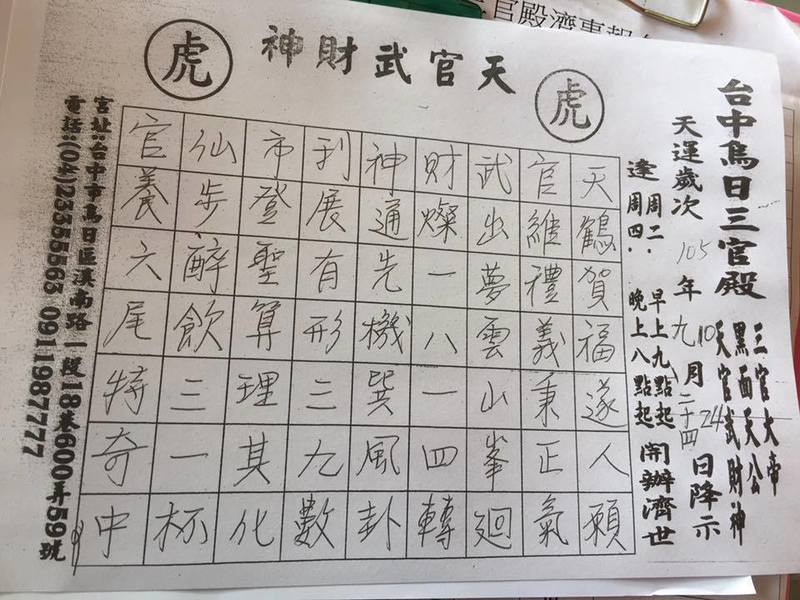 官殿濟事報
台中烏日三官殿
三官大帝
黑面天公
天官武財神
天運歲次 105 年 九 月 二十四 日降示
10 24
逢 周二、早上九點起
周四、晚上八點起
開辦濟世
天官武財神
虎
虎
天鶴賀福遂人願
官維禮義秉正氣
武出夢雲山峯迴
財燦一八一四轉
神通先機巽風卦
利展有形三九數
市登聖算理其化
仙步醉飲三一杯
官養六尾特奇中
宮址:台中市烏日區溪南路一段18巷600弄59號
電話:(04)23355563 0911987777